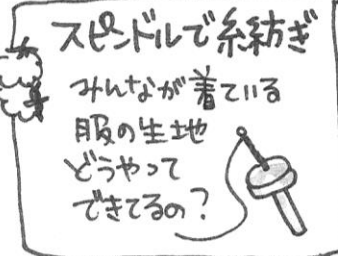 スピンドルで糸紡ぎ
みんなが着ている
服の生地
どうやって
できてるの？